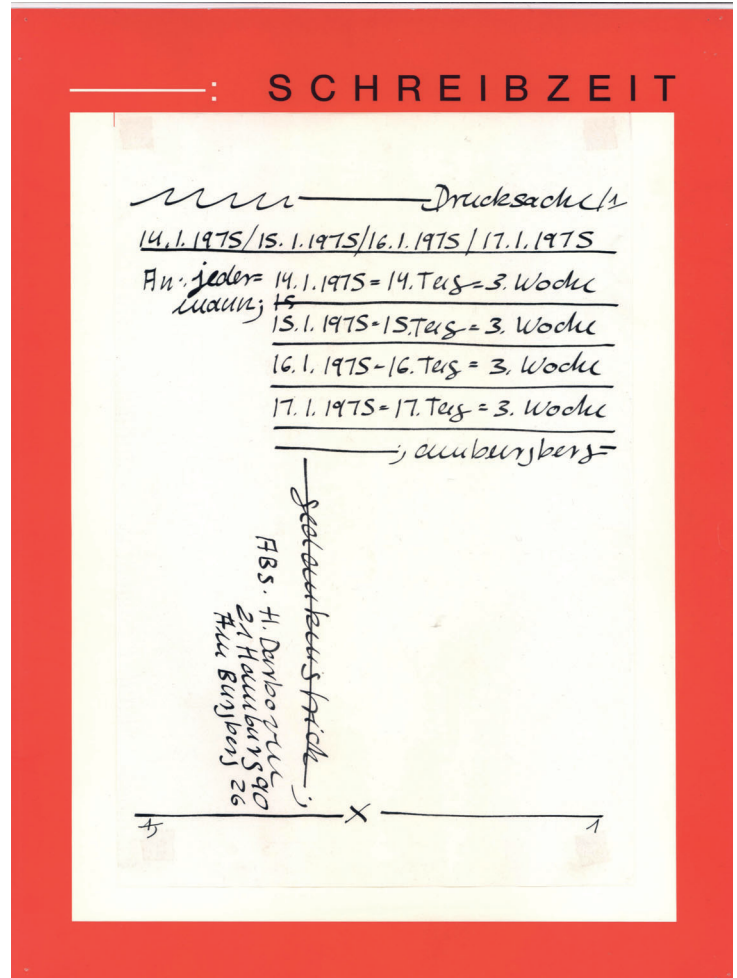 ———: SCHREIBZEIT
———Drucksache/1
14.1.1975/15.1.1975/16.1.1975/17.1.1975
An: jeder= 14.1.1975=14.Tag=3.Woche
mann; 15
15.1.1975=15.Tag=3.Woche
16.1.1975=16.Tag=3.Woche
17.1.1975=17.Tag=3.Woche
———; amburgberg=
—Gedankenstrich—;
ABS. H. Darboven
21 Hamburg 90
Am Burgberg 26
———X———
1